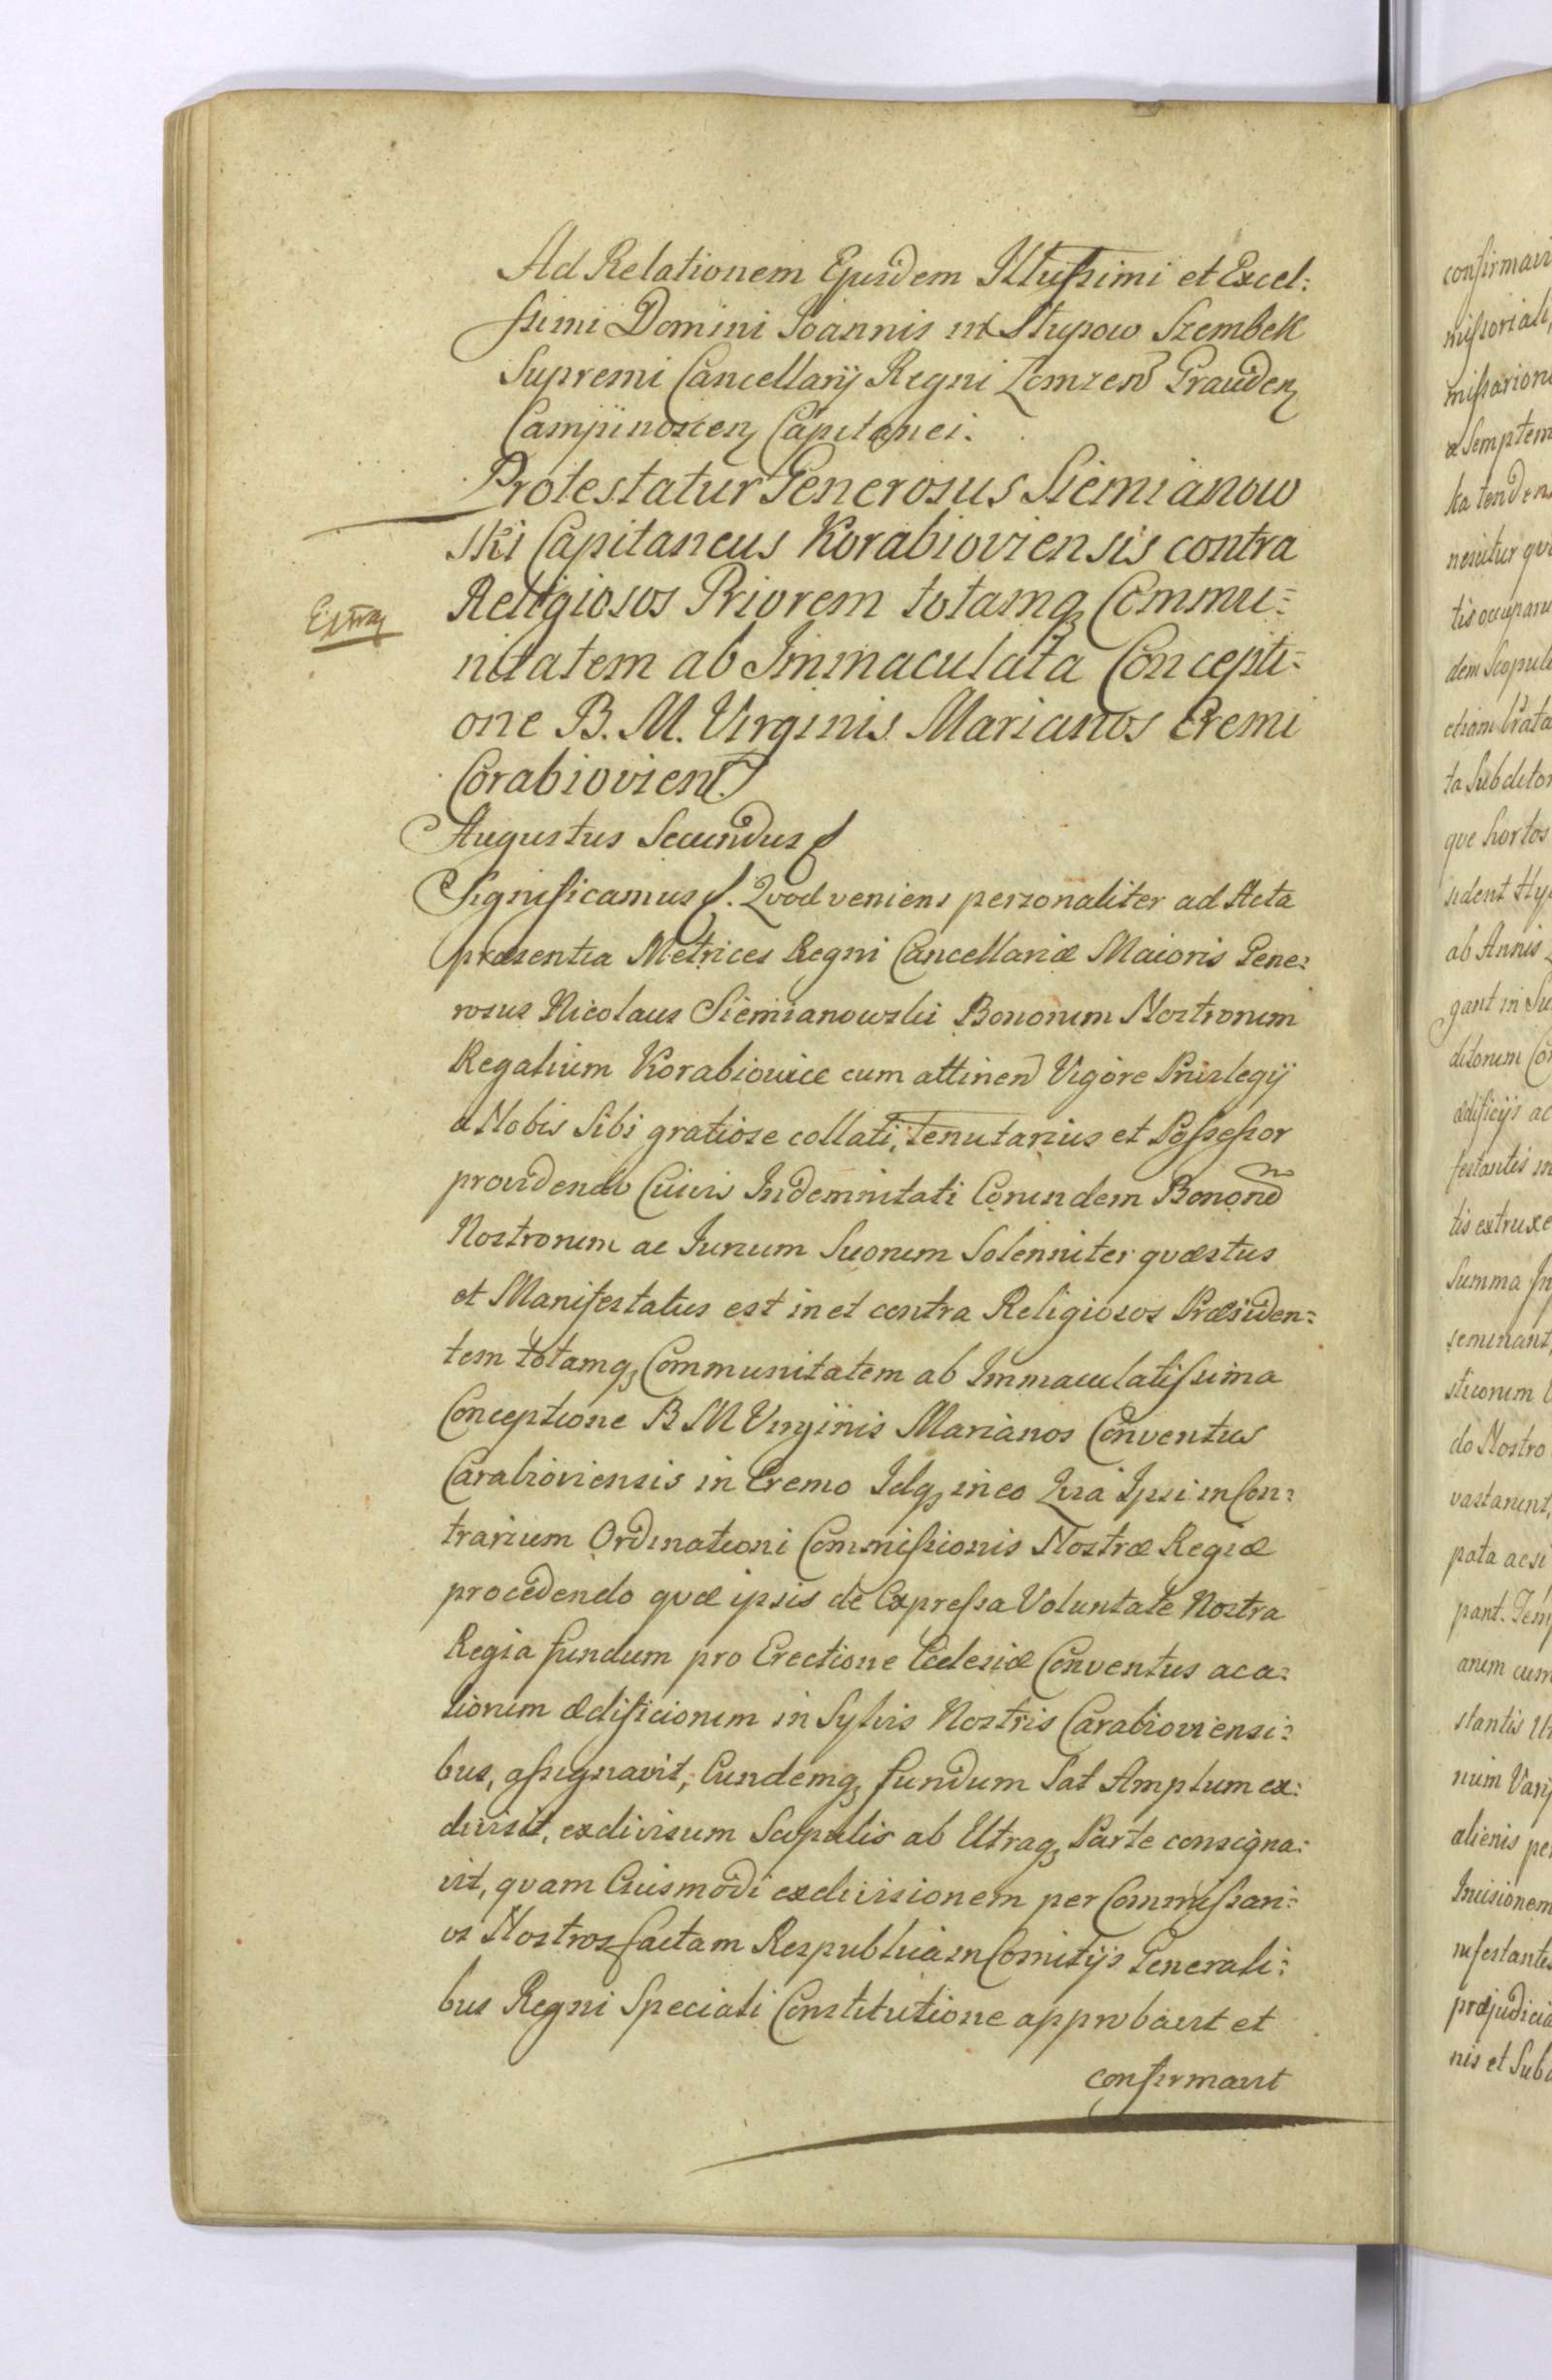 Ad Relationem Ejusdem Illussimi et Excel:
ssimi Domini Joannis in Słupow Szembek
Supremi Cancellarij Regni Lomzen Grauden
Campinoscen Capitanei.
Protestatur Generosus Siemianow
ski Capitaneus Korabioviensis contra
Religiosos Priorem totamq Commu:
nitatem ab Immaculata Concepti:
one B. M. Virginis Marianos Eremi
Corabiovien
Augustus Secundus
Significamus. Quod veniens personaliter ad Acta
præsentia Metrices Regni Cancellariæ Maioris Gene:
rosus Nicolaus Siemianowski Bonorum Nostrorum
Regalium Korabiowice cum attinen Vigore Privilegij
a Nobis Sibi gratiose collati, tenutarius et Possessor
providendo Cuivis Indemnitati Eorundem Bonon
Nostrorum ac Iurium Suorum Solenniter quæstus
et Manifestatus est in et contra Religiosos Præsiden:
tem totamq Communitatem ab Immaculatissima
Conceptione B M Virginis Marianos Conventus
Carabioviensis in Eremo Idq in eo Quia Ipsi in Con:
trarium Ordinationi Commissionis Nostræ Regiæ
procedendo quæ ipsis de Expressa Voluntate Nostra
Regia fundum pro Erectione Ecclesiæ Conventus ac a:
liorum ædificiorum in Sylvis Nostris Carabioviensi:
bus, assignavit, Eundemq fundum Sat Amplum ex:
divisit, exdivisum Scopulis ab Utraq Parte consigna:
vit, quam Eiusmodi exdivisionem per Commissari:
os Nostros factam Respublica in Comitijs Generali:
bus Regni Speciali Constitutione approbavit et
confirmavit
confirmavit
missoriali,
ka tenden
dem Scopuli
ta Subditor
que hortos
ab Annis
gant in Su
ditorum Con
ædificijs ac
festantis in
tis extruxe
Summa
seminant,
sticorum
do Nostro
vastarunt,
pata ac si
pant.
arum cum
stantis
alienis per
Incisionem
præjudicia
nis et Subd